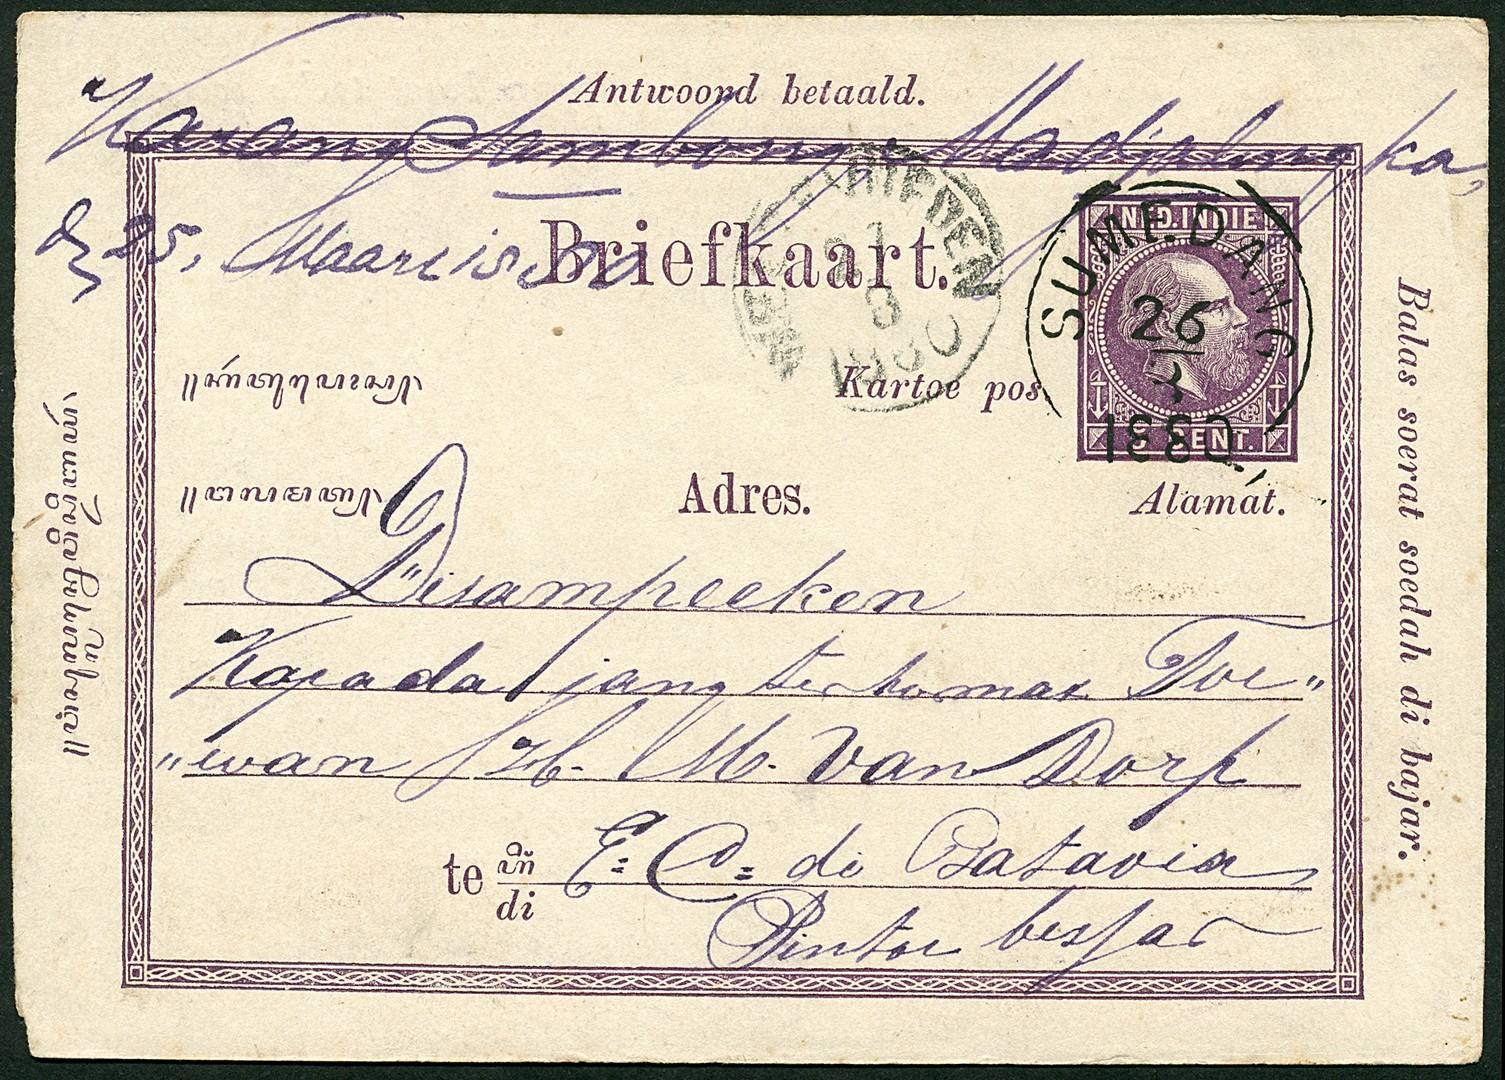 Antwoord betaald.
Karang Sambong, Madjalengka,
25, Maart 1880
Briefkaart.
NED. INDIE
SUMEDANG
26
3
1880
WELTEVREDEN
3
1880
Kartoe pos.
5 CENT.
Adres.
Alamat.
Disampeeken
Kapada jang terhormat Toe"
"wan
M. van Dorp
te
di
& Co di Batavia
Pintoe bessar
Balas soerat soedah di bajar.